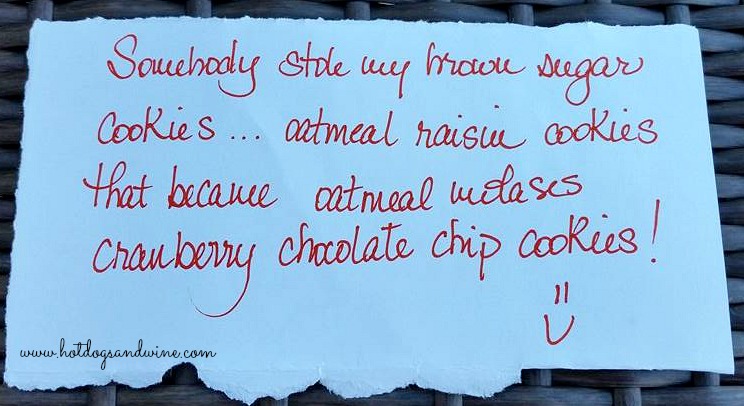 Somebody stole my brown sugar
cookies... oatmeal raisin cookies
that became oatmeal molases
cranberry chocolate chip cookies!
www.hotdogsandwine.com